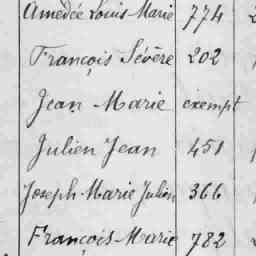 Amedée Louis Marie 774
François Sévère 202
Jean Marie exempt
Julien Jean 451
Joseph Marie Julien 366
François-Marie 782